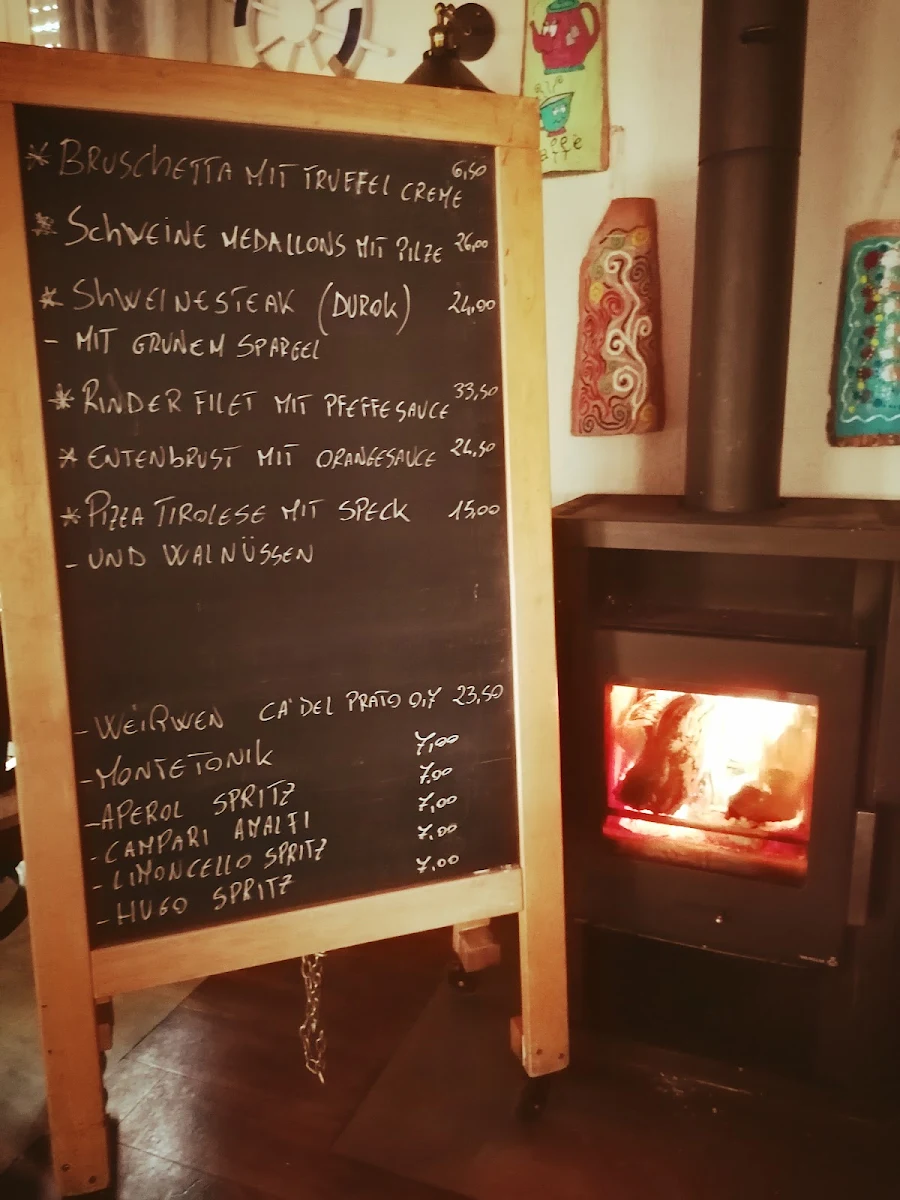 * BRUSCHETTA MIT TRUFFEL CREME 6,50
* SCHWEINE MEDALLONS MIT PILZE 26,00
* SHWEINESTEAK (DUROK) 24,90
- MIT GRUNEM SPARGEL
* RINDER FILET MIT PFEFFESAUCE 33,50
* ENTENBRUST MIT ORANGESAUCE 24,50
* PIZZA TIROLESE MIT SPECK 15,00
- UND WALNÜSSEN
- WEIßWEN CA' DEL PRATO 0,7 23,50
- MONTETONIK 7,00
- APEROL SPRITZ 7,00
- CAMPARI AMALFI 7,00
- LIMONCELLO SPRITZ 7,00
- HUGO SPRITZ 7,00